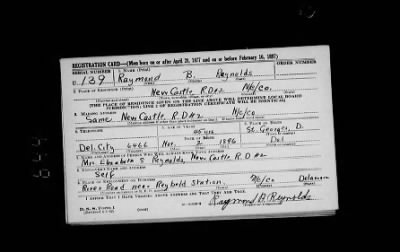 REGISTRATION CARD—(Men born on or after April 28, 1877 and on or before February 16, 1897)
SERIAL NUMBER 1. NAME (Print)
U 139 Raymond B. Reynolds
2. PLACE OF RESIDENCE (Print)
New Castle, R.D #2 N/C/Co.
[THE PLACE OF RESIDENCE GIVEN ON THE LINE ABOVE WILL DETERMINE LOCAL BOARD
JURISDICTION; LINE 2 OF REGISTRATION CERTIFICATE WILL BE IDENTICAL]
3. MAILING ADDRESS
Same New Castle R.D #2 N/C/Co.
4. TELEPHONE 5. AGE IN YEARS 6. PLACE OF BIRTH
45 yrs. St. Georges, D.
Del. City Nov. 1896 Del
7. NAME AND ADDRESS OF PERSON WHO WILL ALWAYS KNOW YOUR ADDRESS
Mrs. S Reynolds, New Castle R.D #2
8. EMPLOYER'S NAME AND ADDRESS
Self
9. PLACE OF EMPLOYMENT OR BUSINESS
River Road near Reybold Station. N/C/Co Delaware
I AFFIRM THAT I HAVE VERIFIED ABOVE ANSWERS AND THAT THEY ARE TRUE.
D. S. S. Form 1
Raymond B. Reynolds